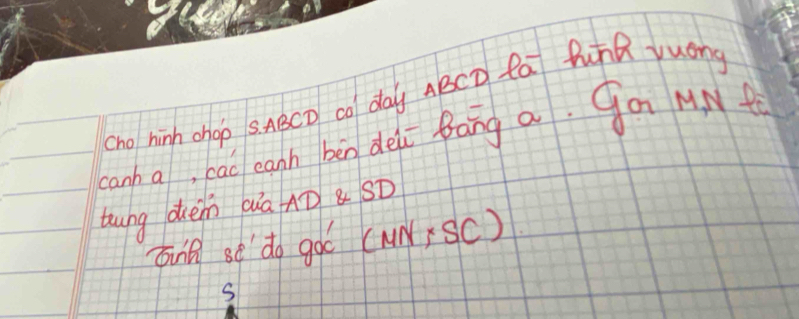 Cho hình chóp S.ABCD có đáy ABCD là hình vuông
cạnh a, các cạnh bên đều bằng a. Gọi M,N là
trung điểm của AD & SD
Tính số đo góc (MN, SC).
S